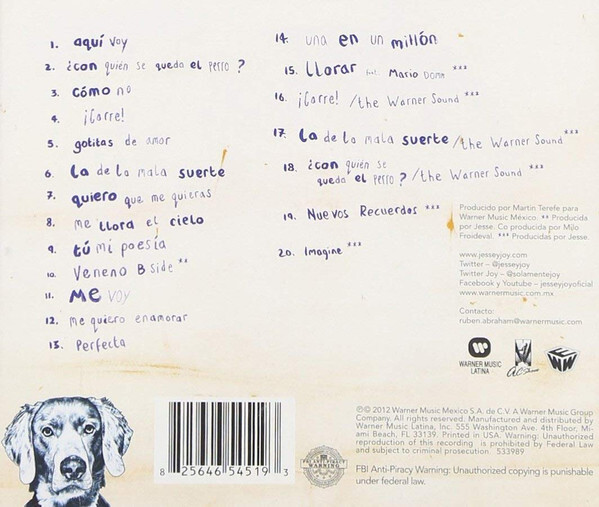 1. aquí voy
2. ¿con quién se queda el perro?
3. cómo no
4. ¡Corre!
5. gotitas de amor
6. La de la mala suerte
7. quiero que me quieras
8. me llora el cielo
9. tú mi poesía
10. Veneno B side**
11. Me voy
12. me quiero enamorar
13. Perfecta
14. una en un millón
15. Llorar feat. Mario Domm ***
16. ¡Corre! /the Warner Sound***
17. La de la mala suerte/the Warner Sound***
18. ¿con quién se
queda el perro? /the Warner Sound***
19. Nuevos Recuerdos ***
20. Imagine ***
Producido por Martin Terefe para
Warner Music México. ** Producida
por Jesse. Co producida por Milo
Froideval. *** Producidas por Jesse.
www.jesseyjoy.com
Twitter – @jesseyjoy
Twitter Joy – @solamentejoy
Facebook y Youtube – jesseyjoyoficial
www.warnermusic.com.mx
Contacto:
ruben.abraham@warnermusic.com
WARNER MUSIC
LATINA
℗© 2012 Warner Music Mexico S.A. de C.V. A Warner Music Group
Company. All rights reserved. Manufactured and distributed by
Warner Music Latina, Inc. 555 Washington Ave. 4th Floor, Mi-
ami Beach, FL 33139. Printed in USA. Warning: Unauthorized
reproduction of this recording is prohibited by Federal Law
and subject to criminal prosecution. 533989
8 25646 54519 3
FBI ANTI-PIRACY
WARNING
FBI Anti-Piracy Warning: Unauthorized copying is punishable
under federal law.